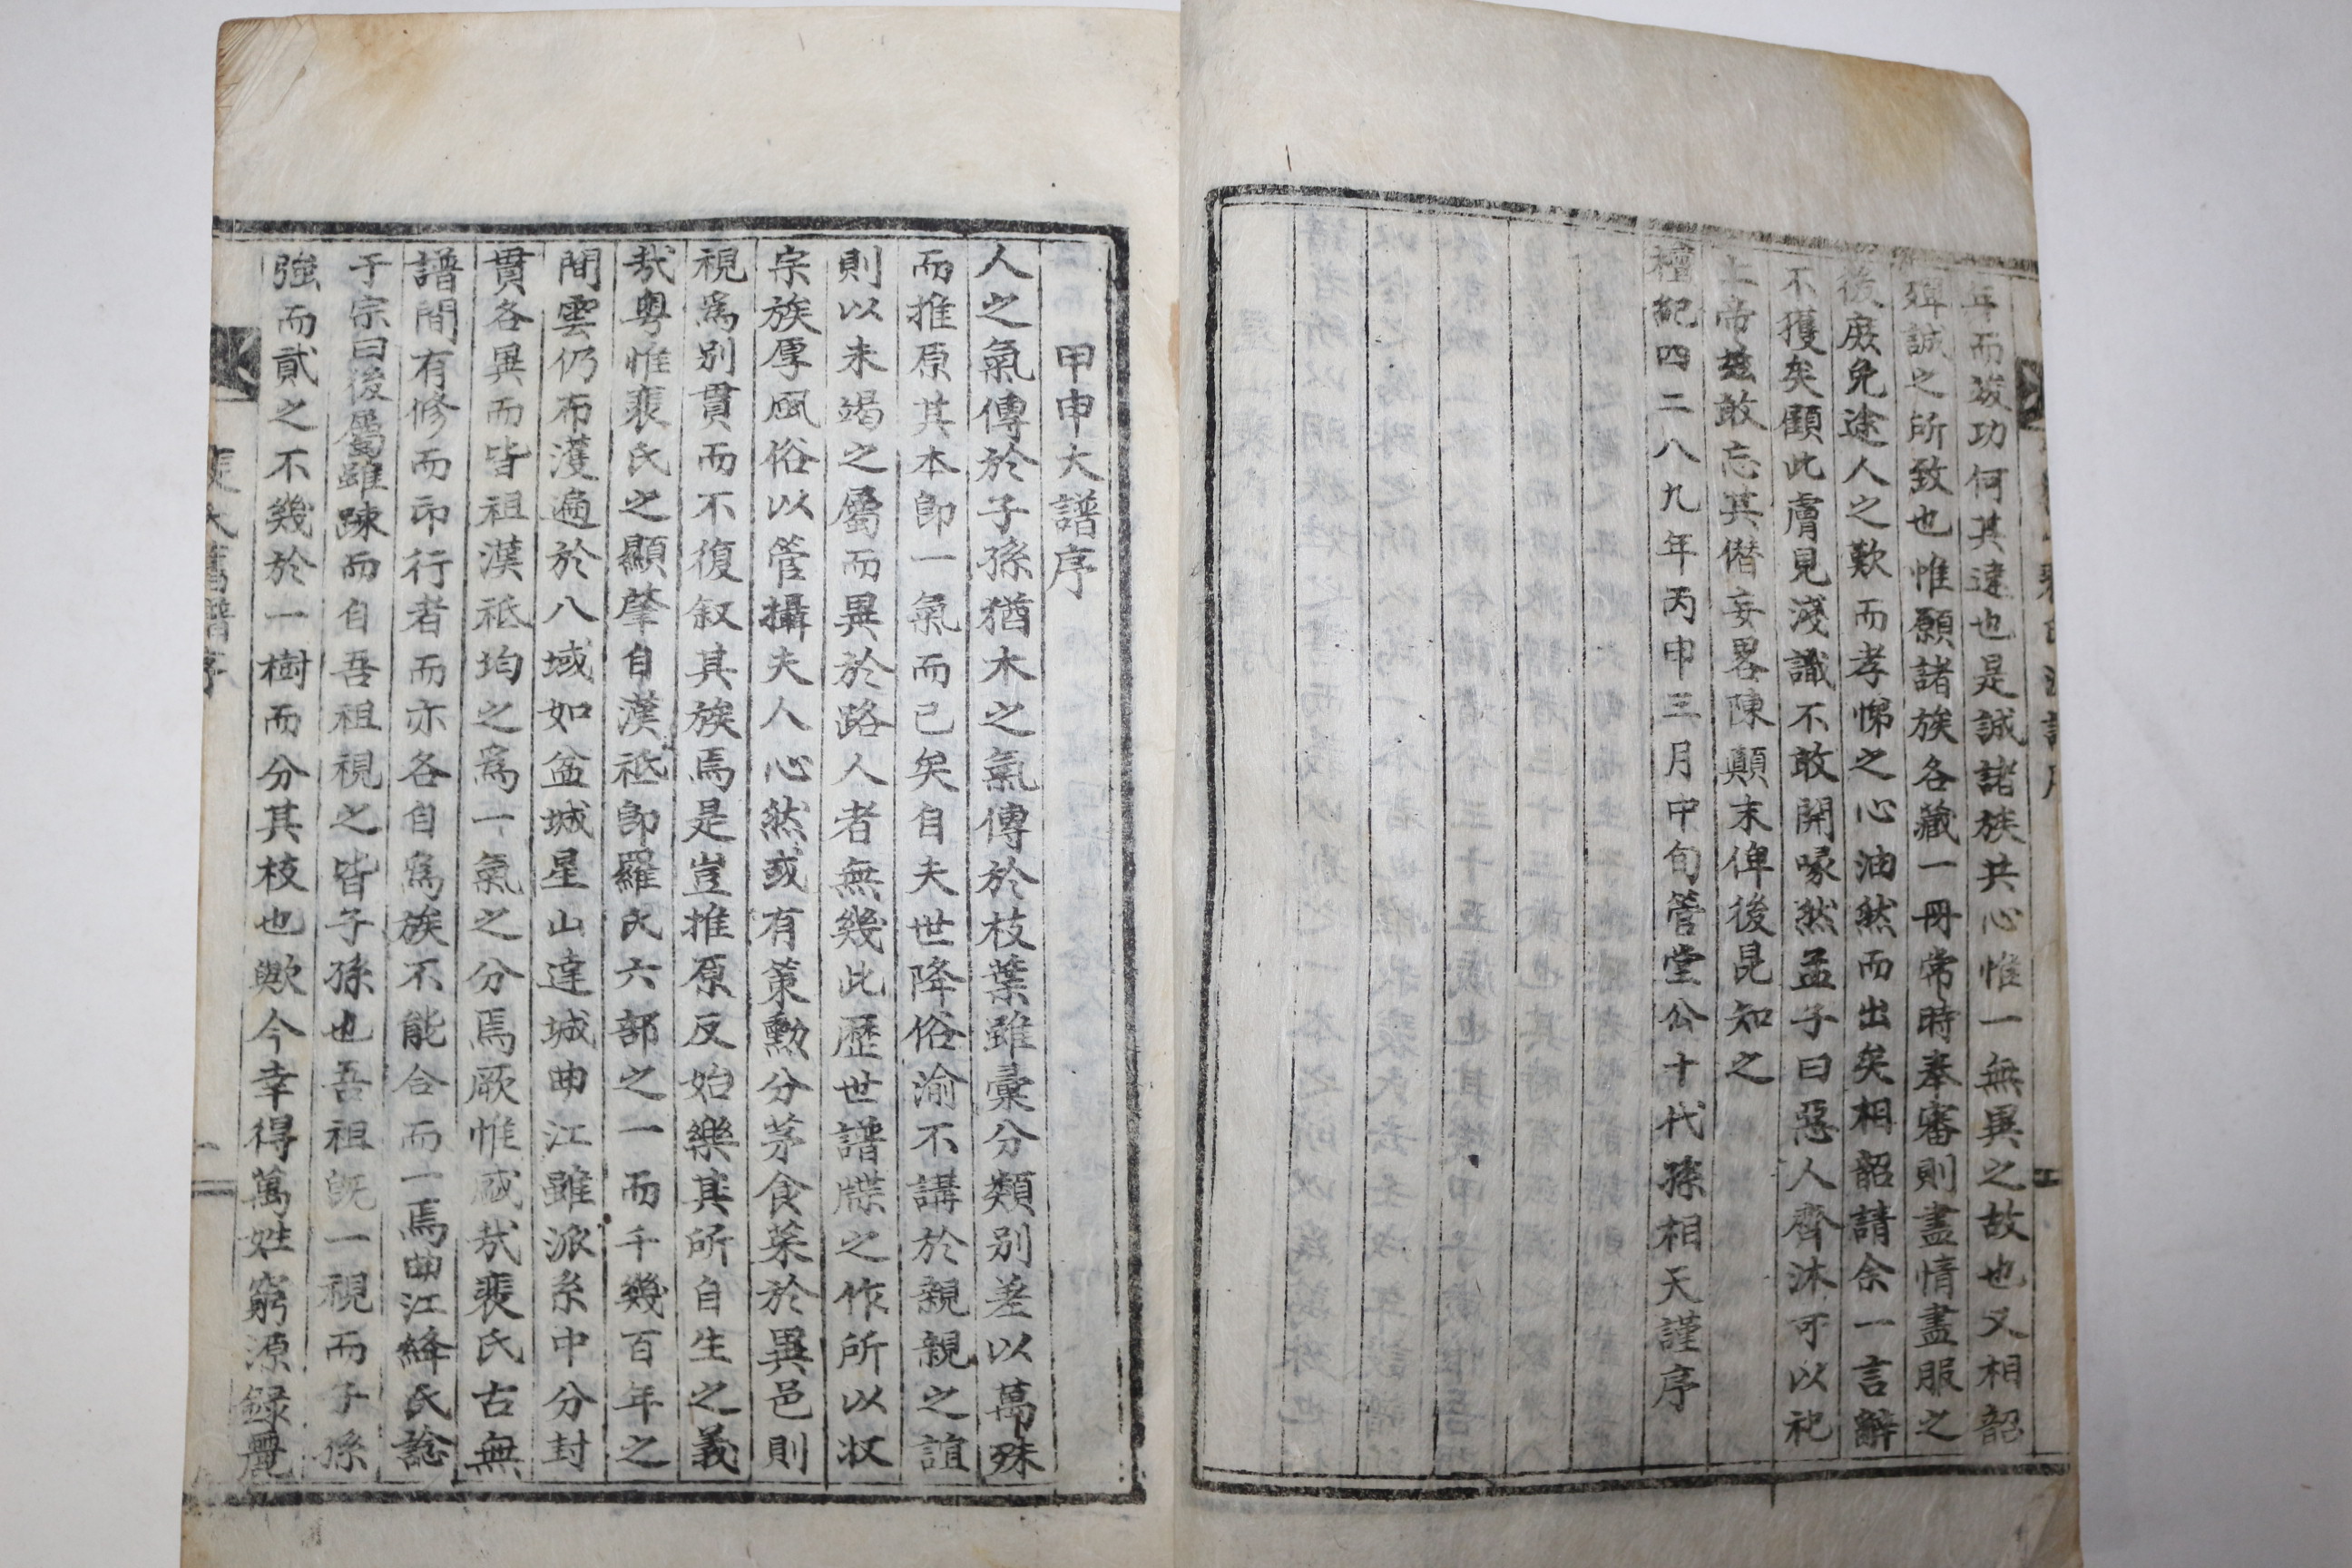 年而竣功何其速也是誠諸族共心惟一無異之故也又相韶
殫誠之所致也惟願諸族各藏一冊常時奉審則盡情盡服之
後庶免途人之歎而孝悌之心油然而出矣相韶請余一言辭
不獲矣顧此膚見淺識不敢開喙然孟子曰惡人齊沐可以祀
上帝玆敢忘其僣妄畧陳顛末俾後昆知之
檀紀四二八九年丙申三月中旬管堂公十代孫相天謹序
甲申大譜序
人之氣傳於子孫猶木之氣傳於枝葉雖彙分類別差以萬殊
而推原其本卽一氣而已矣自夫世降俗渝不講於親親之誼
則以未竭之屬而異於路人者無幾此歷世譜牒之作所以收
宗族厚風俗以管攝夫人心然或有策勳分茅食菜於異邑則
視爲別貫而不復叙其族焉是豈推原反始樂其所自生之義
哉粤惟裵氏之顯肇自漢祗卽羅氏六部之一而千幾百年之
間雲仍布濩遍於八域如盆城星山達城曲江雖派系中分封
貫各異而皆祖漢祗均之爲一氣之分焉厥惟感哉裵氏古無
譜間有修而印行者而亦各自爲族不能合而一焉曲江絳氏諗
于宗曰後屬雖踈而自吾祖視之皆子孫也吾祖旣一視而子孫
強而貳之不幾於一樹而分其枝也歟今幸得萬姓窮源錄
大舊譜序